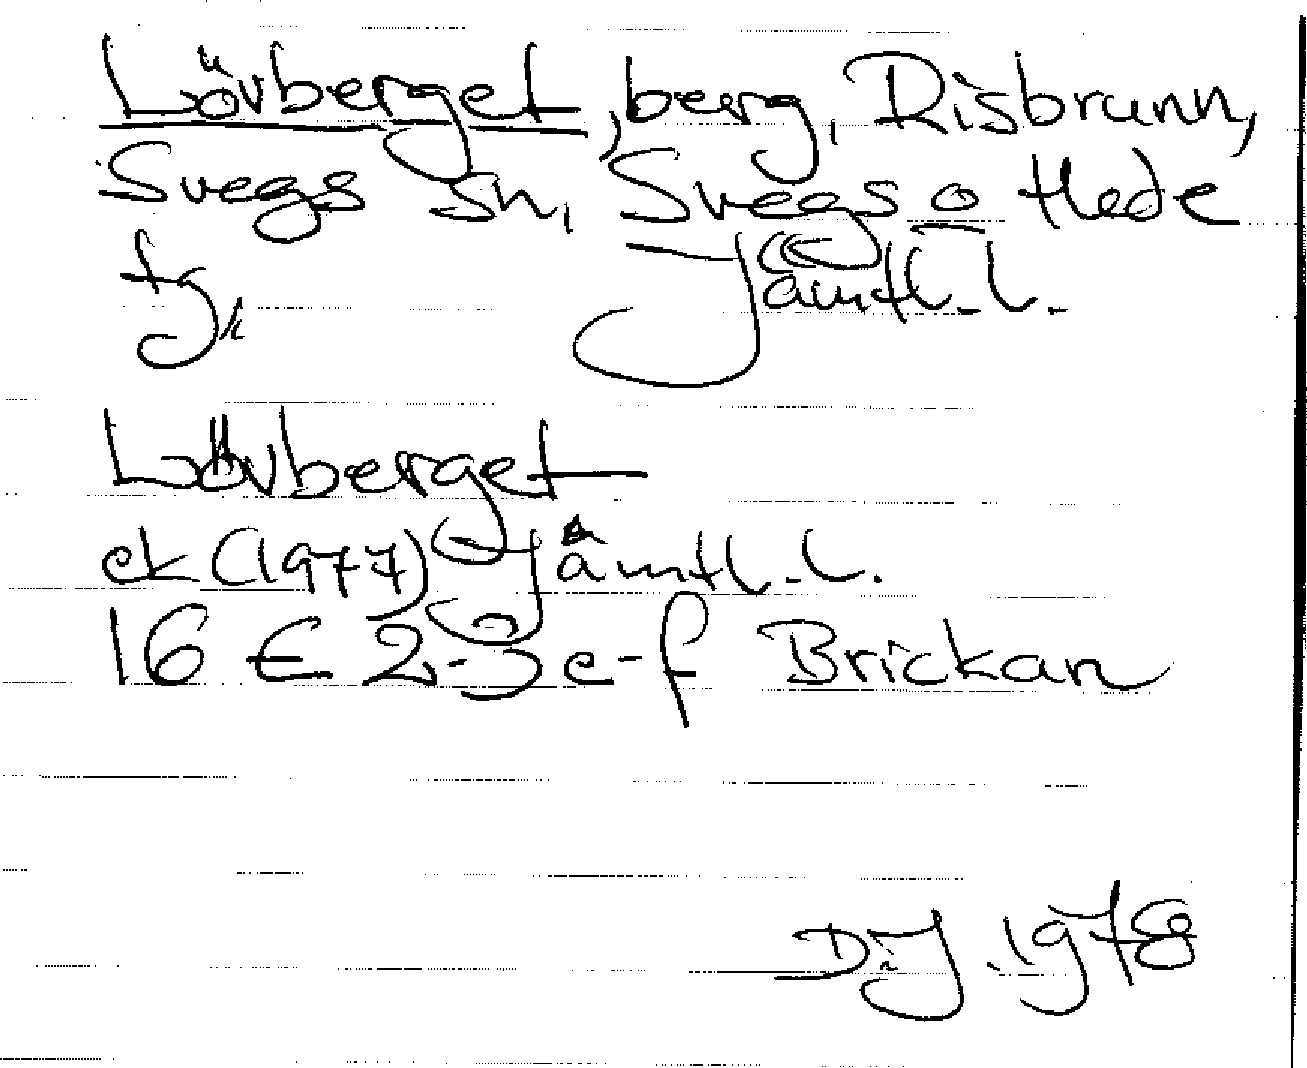 Lövberget, berg, Risbrunn,
Svegs sn, Svegs o Hede
tj, Jämtl. l.
Lövberget
ek (1977) Jämtl. l.
16 E 2-3 e-f Brickan
D.J. 1978